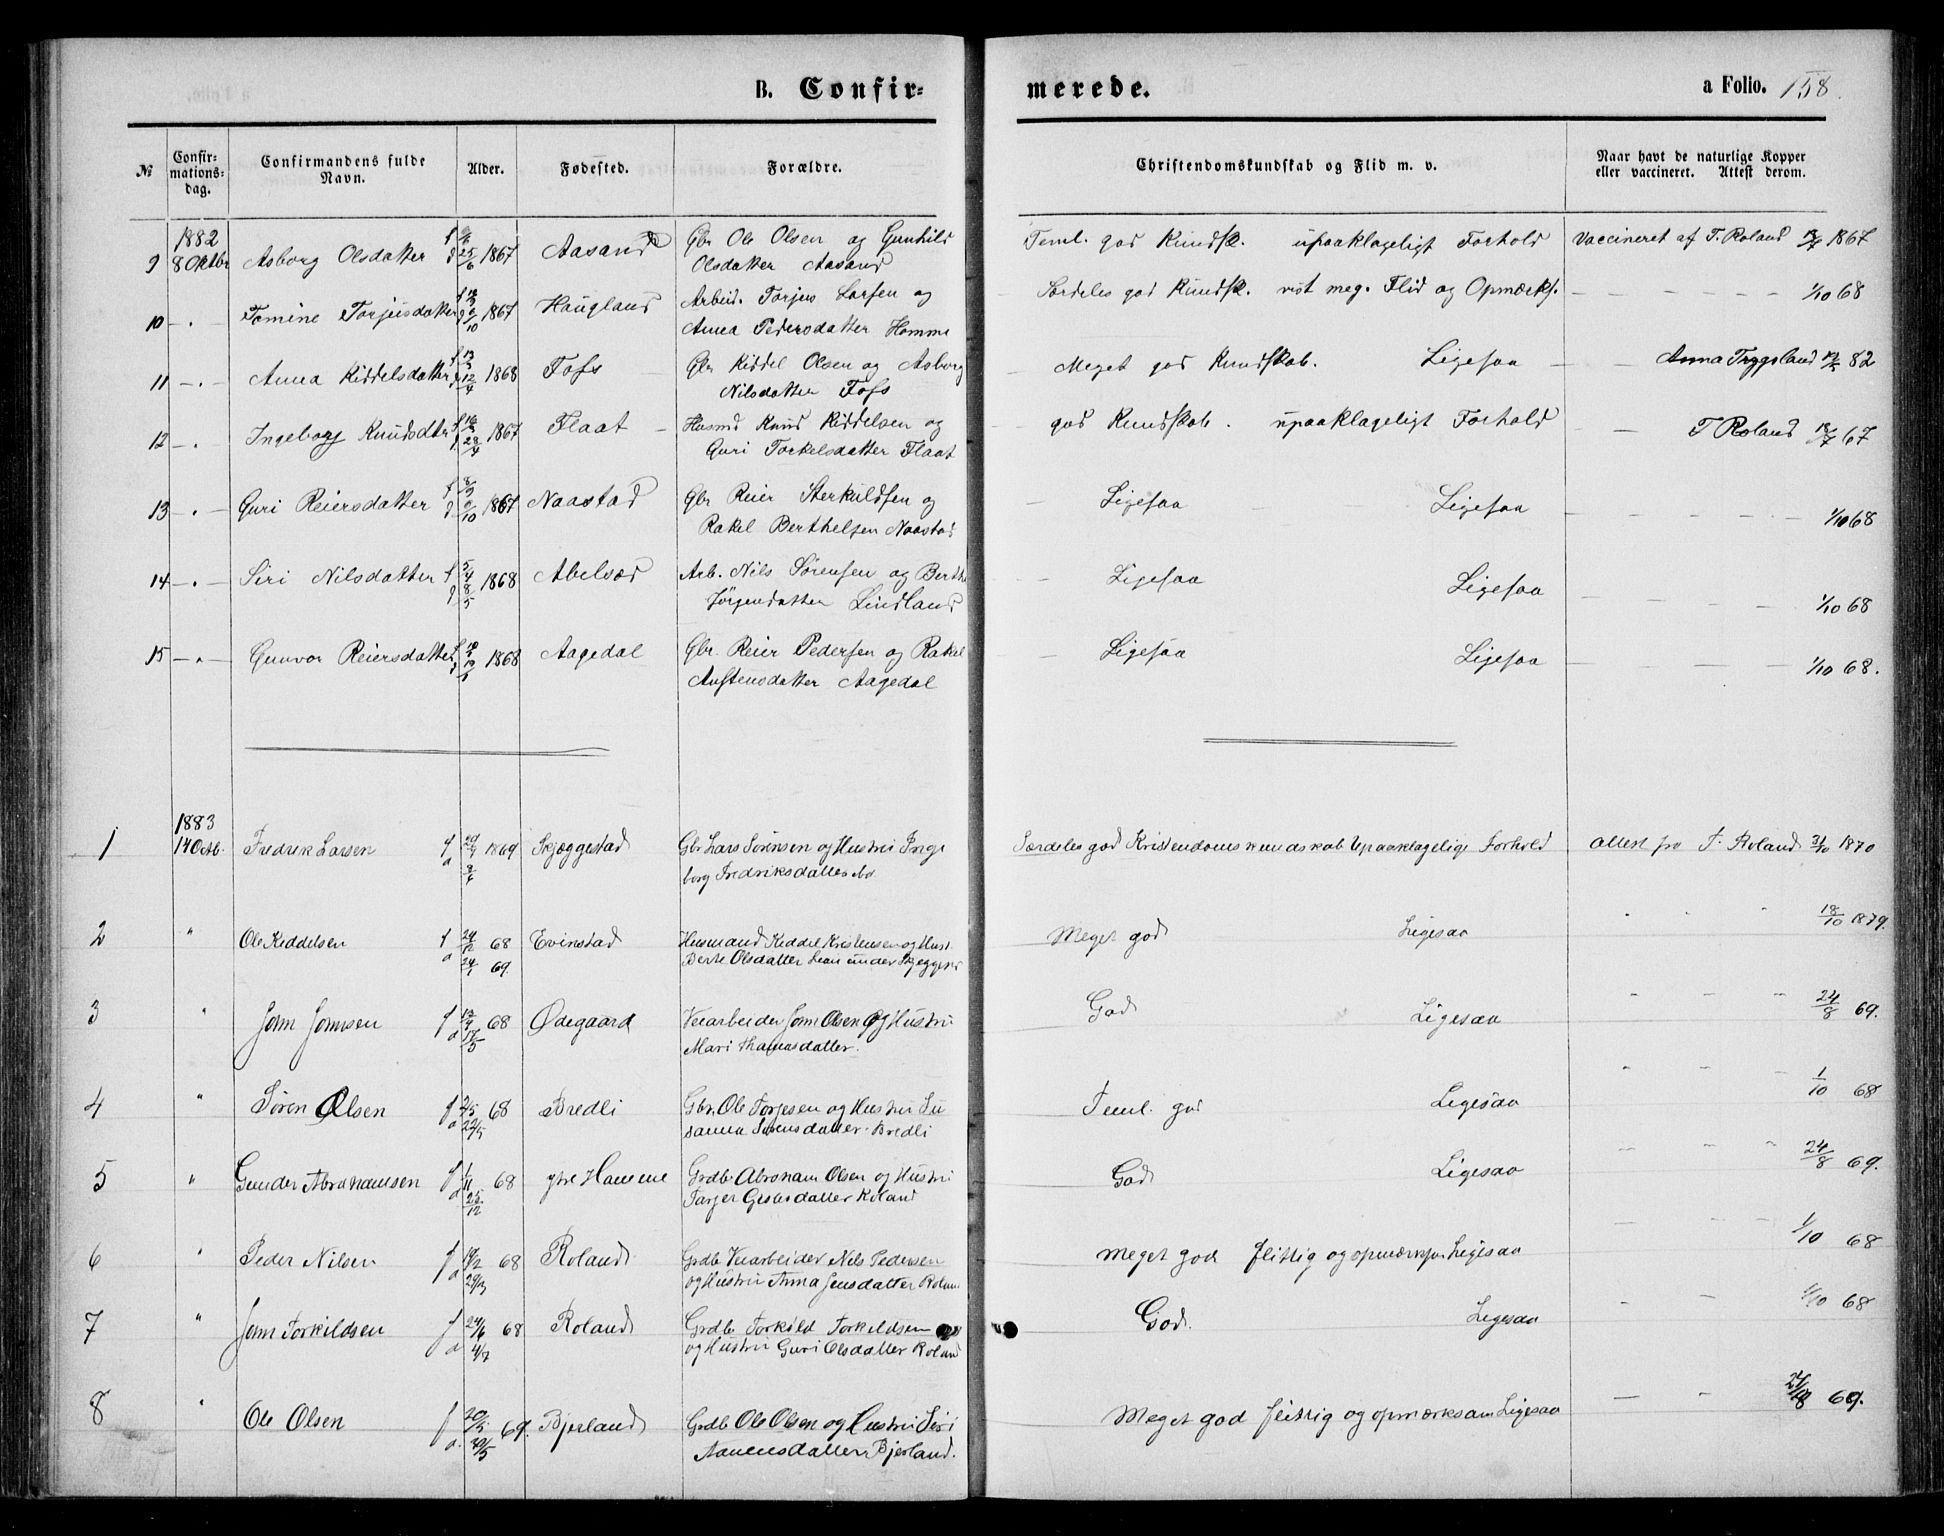 B. Confir-
merede.
a Folio. 158.
№
Confir-
mations-
dag.
Confirmandens fulde
Navn.
Alder.
Fødested.
Forældre.
Christendomskundskab og Flid m. v.
Naar havt de naturlige Kopper
eller vaccineret. Attest derom.
1882
9 8 Oktbr Asborg Olsdatter 25/6 1867 Aasand Gbr Ole Olsen og Gunhild
Olsdatter Aasand
Teml. god Kundsk. upaaklageligt Forhold Vaccineret af T. Roland 1867
10 - . - Tomine Torjusdatter 1867 Haugland Arbeid. Torjus Larsen og
Anna Pedersdatter Homme
Særdeles god Kundsk. vist meg. Flid og Opmærks. 1/10 68
11 - . - Anna Kiddelsdatter 12/4 1868 Fofs Gbr Kiddel Olsen og Asborg
Nilsdatter Fofs
Meget god Kundskab. Ligesaa Anna Trygsland 82
12 - . Ingeborg Knudsdtr 28/4 1867 Flaat Husmd Knud Kiddelsen og
Guri Torkelsdatter Flaat
god Kundskab. upaaklageligt Forhold T Roland 67
13 - . - Guri Reiersdatter 1867 Naastad Gbr Reier Sterkuldsen og
Rakel Berthelsen Naastad
Ligesaa Ligesaa 1/10 68
14 - . - Siri Nilsdatter f 5/4 8/5 1868 Abelsæd Arb. Nils Sørensen og Berthe
Jørgendatter Lindland
Ligesaa Ligesaa 1/10 68
15 - . - Gunvor Reiersdatter 1868 Aagedal Gbr. Reier Pedersen og Rakel
Austensdatter Aagedal
Ligesaa Ligesaa 1/10 68.
1883
1 14 Octb. Fredrik Larsen f 1869 Skjæggestad Gbr Lars Sørensen og Hustru Inge
borg Fredriksdatter
Særdeles god Kristendomskundskab Upaaklagelig Forhold Attest fra T. Roland 31/10 1870
2 " Ole Keddelsen f 29/12 68 Evinstad Husmand Keddel Kristensen og Hust.
a 24/1 69. Berte Olsdatter under Skjeggest
Meget god Ligesaa " " " 18/10 1879.
3 " John Johnsen f 68 Ødegaard Veiarbeider John Olsen og Hustru
a 17/5 Mari Thomasdatter.
God Ligesaa " " " 24/8 69.
4 " Søren Olsen f 2/5 68 Bredli Gbr. Ole Torjesen og Hustru Su
a 22/5 sanna Sørensdatter Bredli
Teml. god Ligesaa " " " 1/10 68
5 " Gunder Abrahamsen f 1/11 68 ytre Homme Grdbr Abraham Olsen og Hustru
a 25/12 Torjer Roland
God Ligesaa " " 24/8 69.
6 " Peder Nilsen f 19/2 68 Roland Grdb Veiarbeider Nils Pedersen
a 29/3 og Hustru Anna Jensdatter Roland
Meget god flittig og opmærksom Ligesaa " 1/10 68
7 " John Torkildsen f 24/6 68 Roland Grdb Torkild Torkildsen
a 4/7 og Hustru Guri Olsdatter Roland
God. Ligesaa " " 1/10 68
8 " Ole Olsen f 20/5 69. Bjerland Grdb Ole Olsen og Hustru Siri
a. 30/5 Aanensdatter Bjerland.
Meget god flittig og opmærksom Ligesaa " 24/8 69.